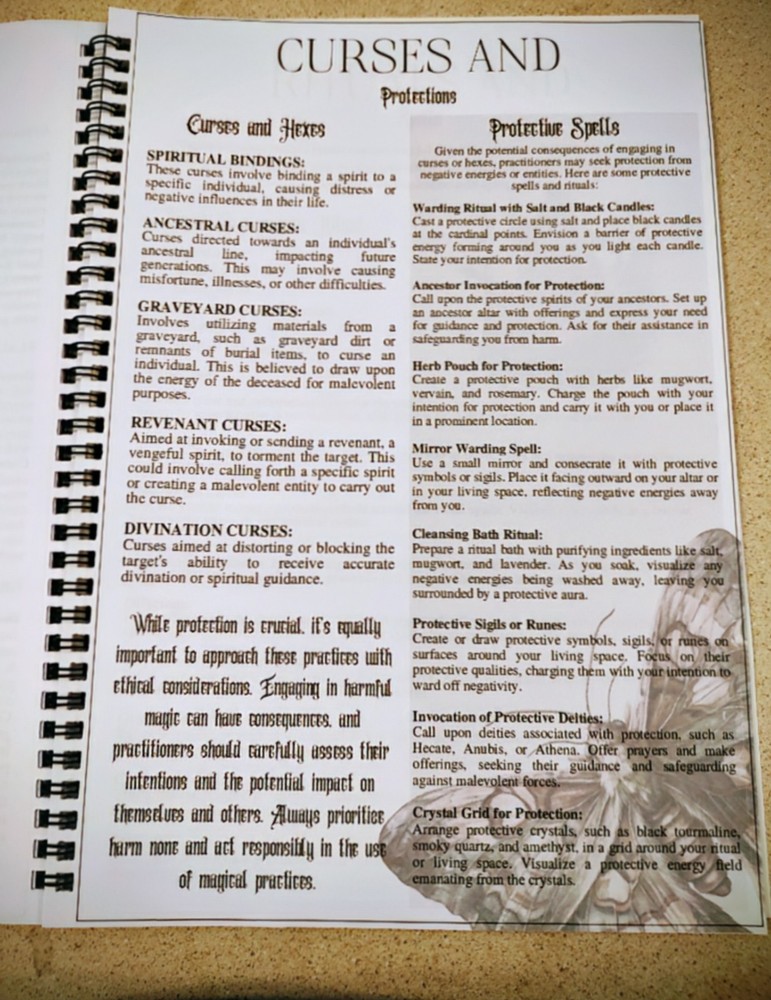 CURSES AND
Protections
Curses and Hexes
SPIRITUAL BINDINGS:
These curses involve binding a spirit to a
specific individual, causing distress or
negative influences in their life.
ANCESTRAL CURSES:
Curses directed towards an individual's
ancestral line, impacting future
generations. This may involve causing
misfortune, illnesses, or other difficulties.
GRAVEYARD CURSES:
Involves utilizing materials from a
graveyard, such as graveyard dirt or
remnants of burial items, to curse an
individual. This is believed to draw upon
the energy of the deceased for malevolent
purposes.
REVENANT CURSES:
Aimed at invoking or sending a revenant, a
vengeful spirit, to torment the target. This
could involve calling forth a specific spirit
or creating a malevolent entity to carry out
the curse.
DIVINATION CURSES:
Curses aimed at distorting or blocking the
target's ability to receive accurate
divination or spiritual guidance.
While protection is crucial, it's equally
important to approach these practices with
ethical considerations. Engaging in harmful
magic can have consequences, and
practitioners should carefully assess their
intentions and the potential impact on
themselves and others. Always prioritize
harm none and act responsibly in the use
of magical practices.
Protective Spells
Given the potential consequences of engaging in
curses or hexes, practitioners may seek protection from
negative energies or entities. Here are some protective
spells and rituals:
Warding Ritual with Salt and Black Candles:
Cast a protective circle using salt and place black candles
at the cardinal points. Envision a barrier of protective
energy forming around you as you light each candle.
State your intention for protection.
Ancestor Invocation for Protection:
Call upon the protective spirits of your ancestors. Set up
an ancestor altar with offerings and express your need
for guidance and protection. Ask for their assistance in
safeguarding you from harm.
Herb Pouch for Protection:
Create a protective pouch with herbs like mugwort,
vervain, and rosemary. Charge the pouch with your
intention for protection and carry it with you or place it
in a prominent location.
Mirror Warding Spell:
Use a small mirror and consecrate it with protective
symbols or sigils. Place it facing outward on your altar or
in your living space, reflecting negative energies away
from you.
Cleansing Bath Ritual:
Prepare a ritual bath with purifying ingredients like salt,
mugwort, and lavender. As you soak, visualize any
negative energies being washed away, leaving you
surrounded by a protective aura.
Protective Sigils or Runes:
Create or draw protective symbols, sigils, or runes on
surfaces around your living space. Focus on their
protective qualities, charging them with your intention to
ward off negativity.
Invocation of Protective Deities:
Call upon deities associated with protection, such as
Hecate, Anubis, or Athena. Offer prayers and make
offerings, seeking their guidance and safeguarding
against malevolent forces.
Crystal Grid for Protection:
Arrange protective crystals, such as black tourmaline,
smoky quartz, and amethyst, in a grid around your ritual
or living space. Visualize a protective energy field
emanating from the crystals.